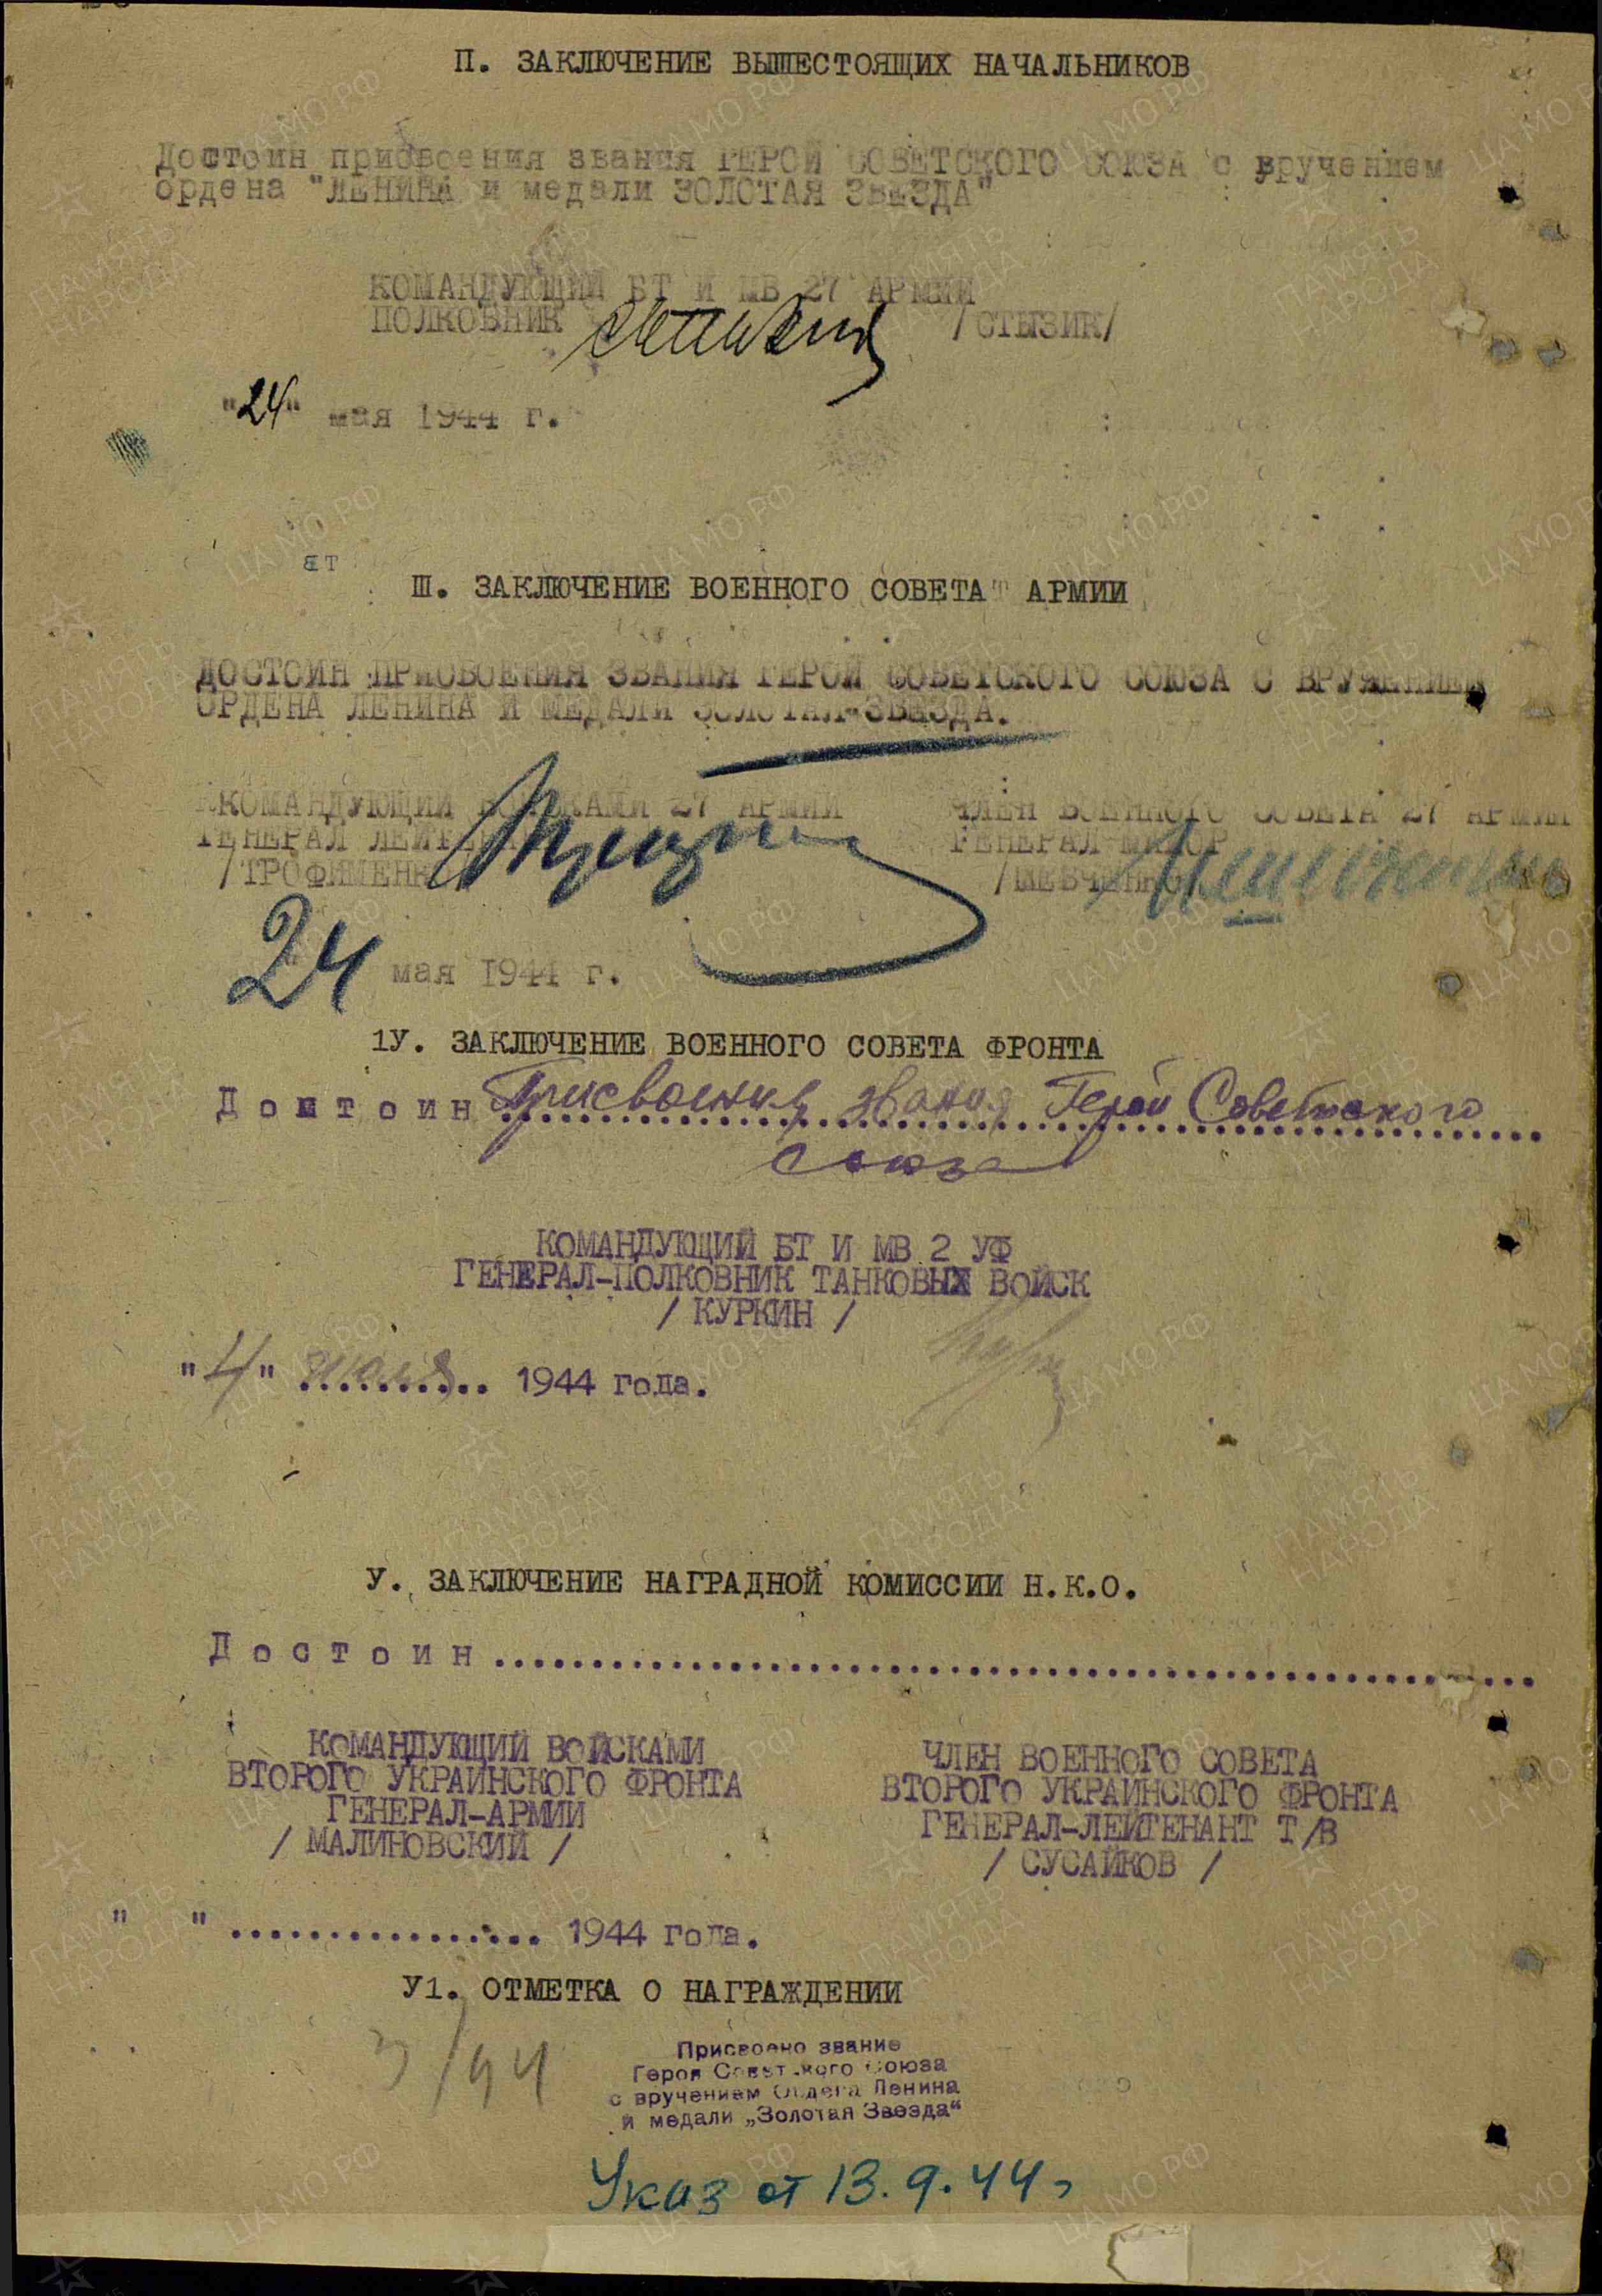 П. ЗАКЛЮЧЕНИЕ ВЫШЕСТОЯЩИХ НАЧАЛЬНИКОВ
Достоин присвоения звания ГЕРОЙ СОВЕТСКОГО СОЮЗА с вручением
ордена "ЛЕНИНА и медали ЗОЛОТАЯ ЗВЕЗДА"
КОМАНДУЮЩИЙ БТ И МВ 27 АРМИИ
ПОЛКОВНИК /СТЫЗИК/
"24" мая 1944 г.
Ш. ЗАКЛЮЧЕНИЕ ВОЕННОГО СОВЕТА АРМИИ
ДОСТОИН ПРИСВОЕНИЯ ЗВАНИЯ ГЕРОЙ СОВЕТСКОГО СОЮЗА С ВРУЧЕНИЕМ
ОРДЕНА ЛЕНИНА И МЕДАЛИ ЗОЛОТАЯ-ЗВЕЗДА.
КОМАНДУЮЩИЙ ВОЙСКАМИ 27 АРМИИ
ГЕНЕРАЛ ЛЕЙТЕНАНТ
/ТРОФИМЕНКО
ЧЛЕН ВОЕННОГО СОВЕТА 27 АРМИИ
ГЕНЕРАЛ-МАЙОР
/ШЕВЧЕНКО
24 мая 1944 г.
1У. ЗАКЛЮЧЕНИЕ ВОЕННОГО СОВЕТА ФРОНТА
Достоин Присвоения звания Герой Советского
Союза
КОМАНДУЮЩИЙ БТ И МВ 2 УФ
ГЕНЕРАЛ-ПОЛКОВНИК ТАНКОВЫХ ВОЙСК
/ КУРКИН /
"4" июля 1944 года.
У. ЗАКЛЮЧЕНИЕ НАГРАДНОЙ КОМИССИИ Н.К.О.
Достоин
КОМАНДУЮЩИЙ ВОЙСКАМИ
ВТОРОГО УКРАИНСКОГО ФРОНТА
ГЕНЕРАЛ-АРМИИ
/ МАЛИНОВСКИЙ /
ЧЛЕН ВОЕННОГО СОВЕТА
ВТОРОГО УКРАИНСКОГО ФРОНТА
ГЕНЕРАЛ-ЛЕЙТЕНАНТ Т/В
/ СУСАЙКОВ /
" " ................ 1944 года.
У1. ОТМЕТКА О НАГРАЖДЕНИИ
Присвоено звание
Героя Советского Союза
с вручением Ордена Ленина
и медали „Золотая Звезда“
Указ от 13.9.44 г
ПАМЯТЬ НАРОДА
ЦА МО РФ